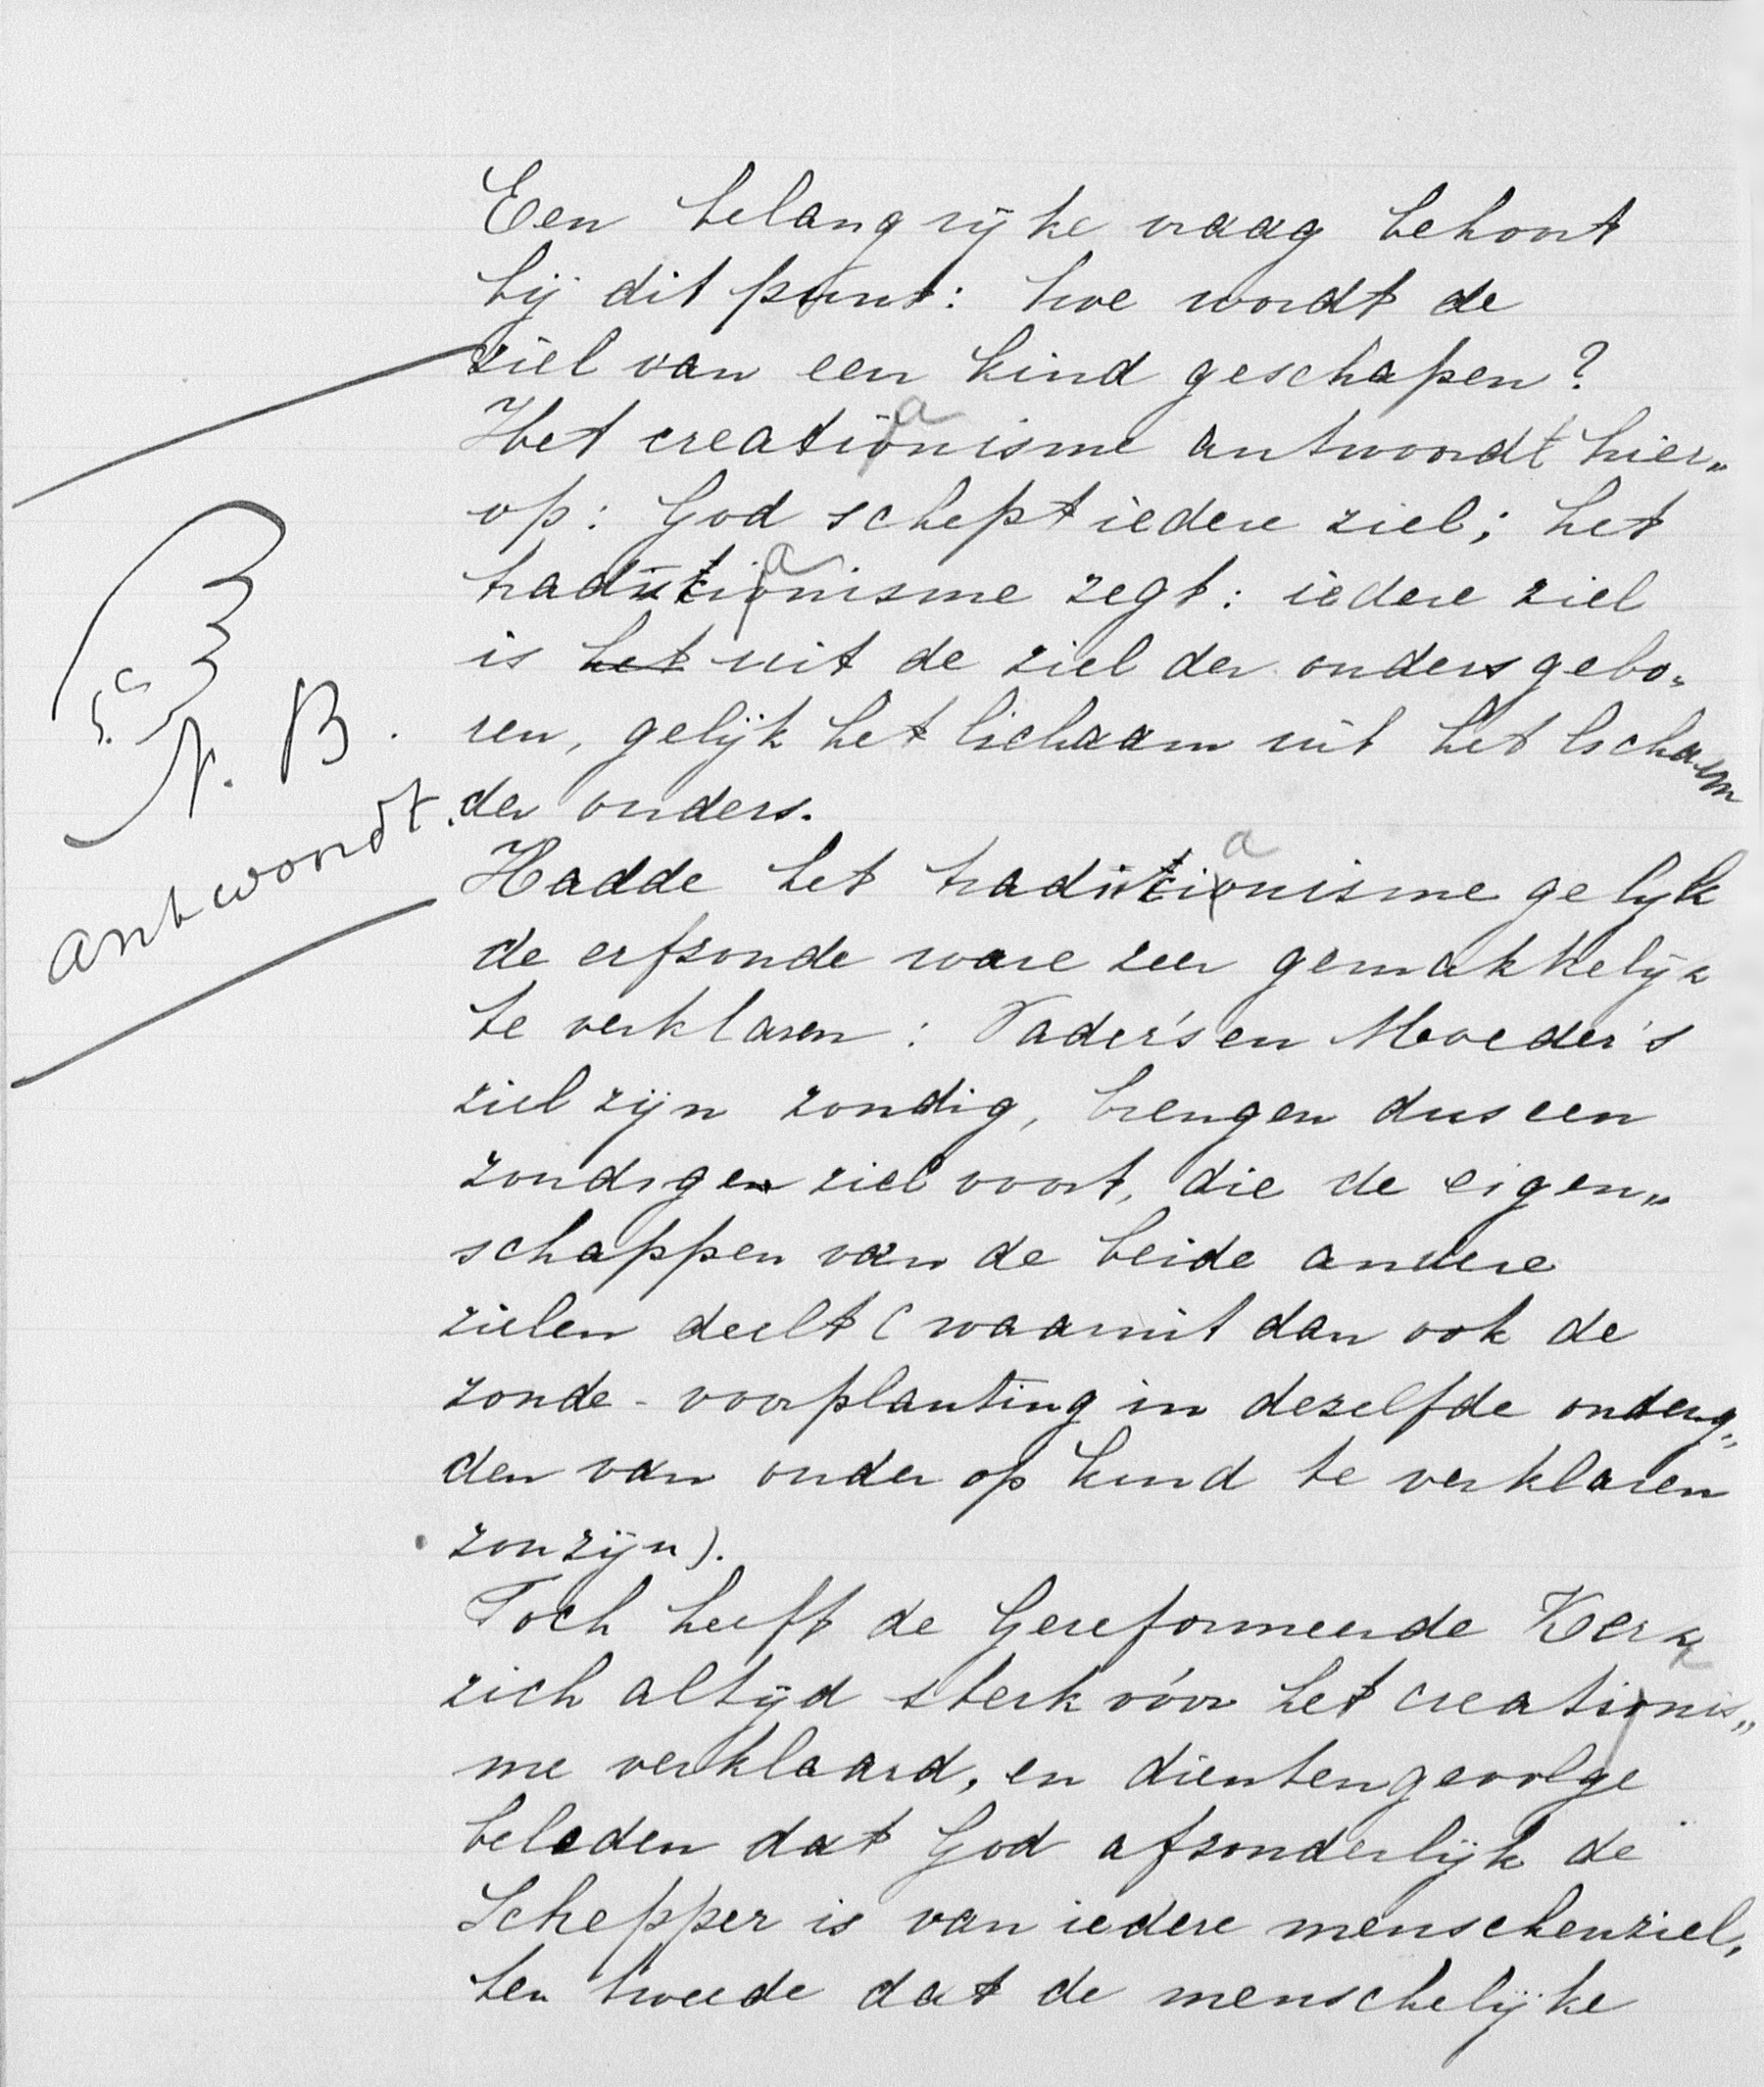 Een belangrijke vraag behoort
bij dit punt: hoe wordt de
ziel van een kind geschapen?
a
Het creationisme antwoordt hier„
op: God schept iedere ziel; het
a
tradutianisme zegt: iedere ziel
is het uit de ziel der ouders gebo„
ren, gelijk het lichaam uit het lichaam
der ouders.
N. B.
antwoordt.
a
Hadde het tradutianisme gelijk
de erfzonde ware zeer gemakkelijk
te verklaren: Vader's en Moeder's
ziel zijn zondig, brengen dus een
zondige ziel voort, die de eigen„
schappen van de beide andere
zielen deelt (waaruit dan ook de
zonde-voorplanting in dezelfde ondeug„
den van ouder op kind te verklaren
zou zijn).
Toch heeft de Gereformeerde Kerk
zich altijd sterk vóór het creationis„
me verklaard, en dientengevolge
beleden dat God afzonderlijk de
Schepper is van iedere menschenziel,
ten tweede dat de menschelijke